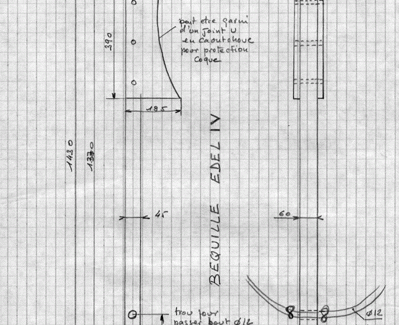 peut etre garni
d'un joint U
en caoutchouc
pour protection
Coque
390
185
1430
BEQUILLE EDEL IV
45
60
Ø12
trou pour
passer bout Ø12